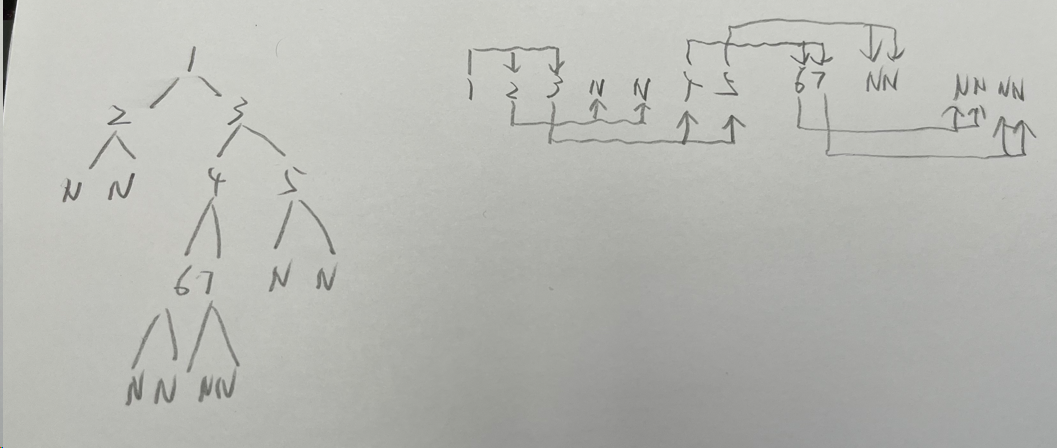 1
2 3
N N 4 5
6 7 N N
N N N N
1 2 3 N N 4 5 6 7 N N N N N N